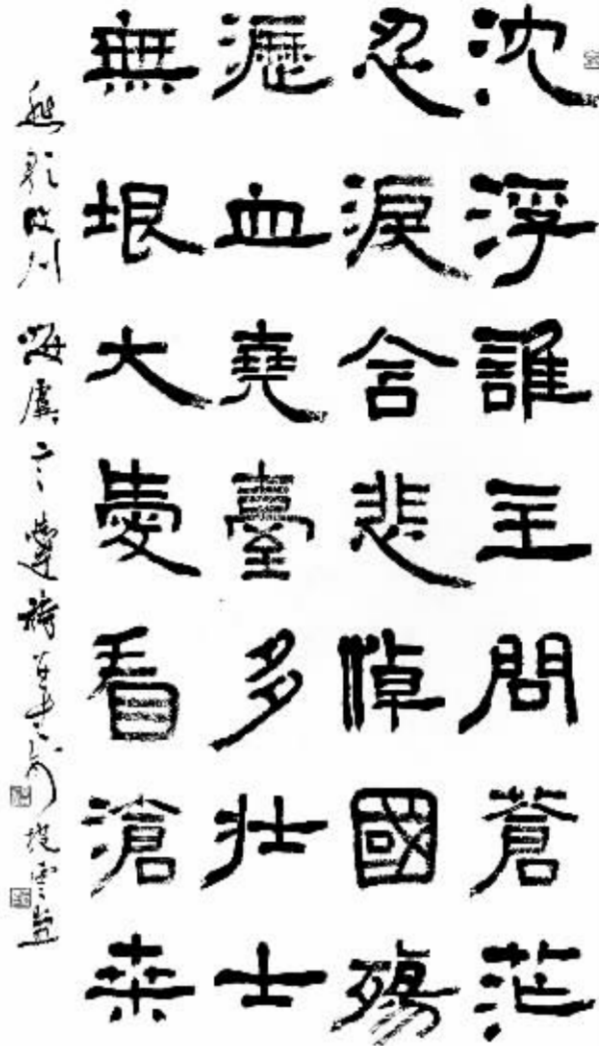 沈浮誰主問蒼茫
忍淚含悲悼國殤
瀝血堯臺多壯士
無垠大愛看滄桑